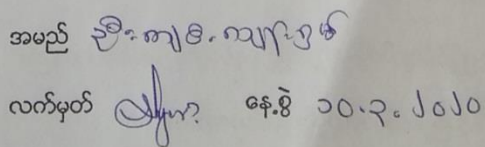 အမည် ဦးကျစ်ကျန်းဝှမ်
လက်မှတ် နေ့စွဲ ၁၀.၃.၂၀၂၀